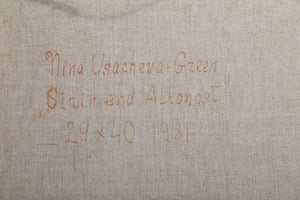 Nina Usacheva-Green
„Sirin and Alkonost"
29x40 1981